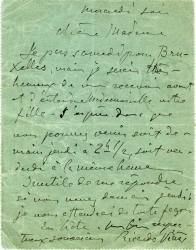 mercredi soir
chère Madame
Je pars samedi pour Bru-
xelles, mais je serais très
heureux de vous recevoir avant
et d'entendre Mademoiselle votre
fille. J'espère donc que
vous pourrez venir soit de-
main jeudi à 2 h 1/2 soit ven-
dredi à la même heure.
Inutile de me répondre
si vous venez demain jeudi
je vous attendrai de toute façon.
En hâte
Ricardo Viñes